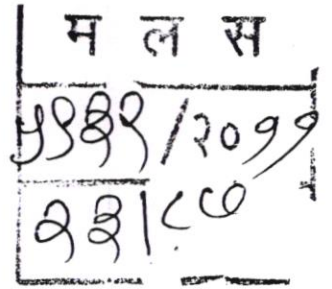 म ल स
५९३९/२०११
२३/८७